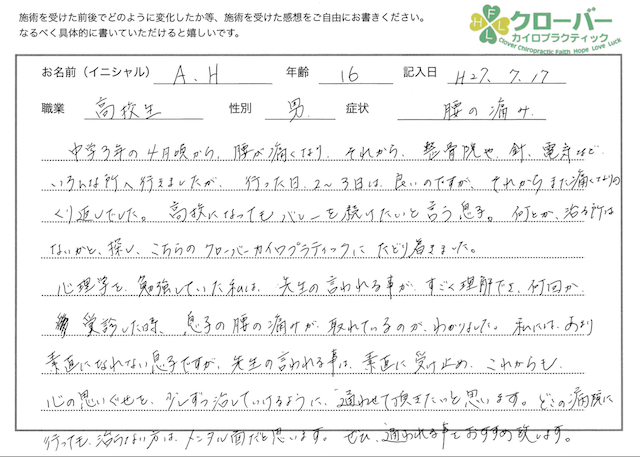 施術を受けた前後でどのように変化したか等、施術を受けた感想をご自由にお書きください。
なるべく具体的に書いていただけると嬉しいです。
HFLL
クローバー
カイロプラクティック
Clover Chiropractic Faith Hope Love Luck
お名前（イニシャル） A.H 年齢 16 記入日 H27.7.17
職業 高校生 性別 男. 症状 腰の痛み.
中学3年の4月頃から、腰が痛くなり、それから、整骨院や、針、電気など、
いろんな所へ行きましたが、行った日、2〜3日は、良いのですが、それからまた痛くなりの
くり返しでした。高校になってもバレーを続けたいと言う息子。何とか、治る所は
ないかと、探し、こちらのクローバーカイロプラティックにたどり着きました。
心理学を、勉強していた私は、先生の言われる事が、すごく理解でき、何回か、
受診した時、息子の腰の痛みが、取れているのが、わかりました。私には、あまり
素直になれない息子ですが、先生の言われる事は、素直に受け止め、これからも、
心の思いぐせを、少しずつ治していけるように、通わせて頂きたいと思います。どこの病院に
行っても、治らない方は、メンタル面だと思います。ぜひ、通われる事をおすすめ致します。